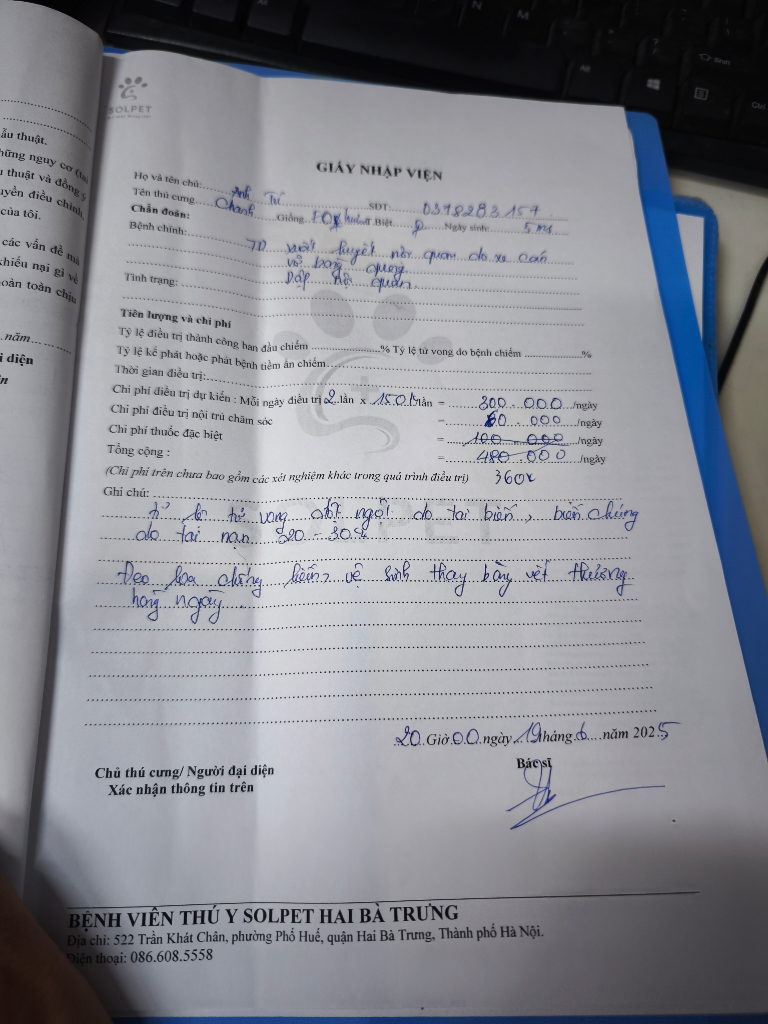 ẫu thuật.
những nguy cơ (tai
thuật và đồng ý
uyền điều chỉnh,
của tôi.
các vấn đề mà
khiếu nại gì về
oàn toàn chịu
năm
i diện
SOLPET
GIẤY NHẬP VIỆN
Họ và tên chủ: Anh Tú SĐT: 0378283157
Tên thú cưng Chanh Giống Fox Biệt Ngày sinh: 5
Chẩn đoán:
Bệnh chính: TD xuất huyết nội quan do xe cán
vỡ bàng quang
Tình trạng: Dập nội quan
Tiên lượng và chi phí
Tỷ lệ điều trị thành công ban đầu chiếm % Tỷ lệ tử vong do bệnh chiếm %
Tỷ lệ kế phát hoặc phát bệnh tiềm ẩn chiếm
Thời gian điều trị:
Chi phí điều trị dự kiến : Mỗi ngày điều trị 2 lần x 150k/lần = 300.000 /ngày
Chi phí điều trị nội trú chăm sóc = 60.000 /ngày
Chi phí thuốc đặc biệt = 100.000 /ngày
Tổng cộng : = 480.000 /ngày
(Chi phí trên chưa bao gồm các xét nghiệm khác trong quá trình điều trị) 360k
Ghi chú:
tỉ lệ tử vong đột ngột do tai biến, biến chứng
do tai nạn 20 - 30%
Đeo loa chống liếm, vệ sinh thay băng vết thương
hàng ngày.
20 Giờ 00 ngày 19 tháng 6 năm 2025
Chủ thú cưng/ Người đại diện
Xác nhận thông tin trên
Bác sĩ
BỆNH VIỆN THÚ Y SOLPET HAI BÀ TRƯNG
Địa chỉ: 522 Trần Khát Chân, phường Phố Huế, quận Hai Bà Trưng, Thành phố Hà Nội.
Điện thoại: 086.608.5558